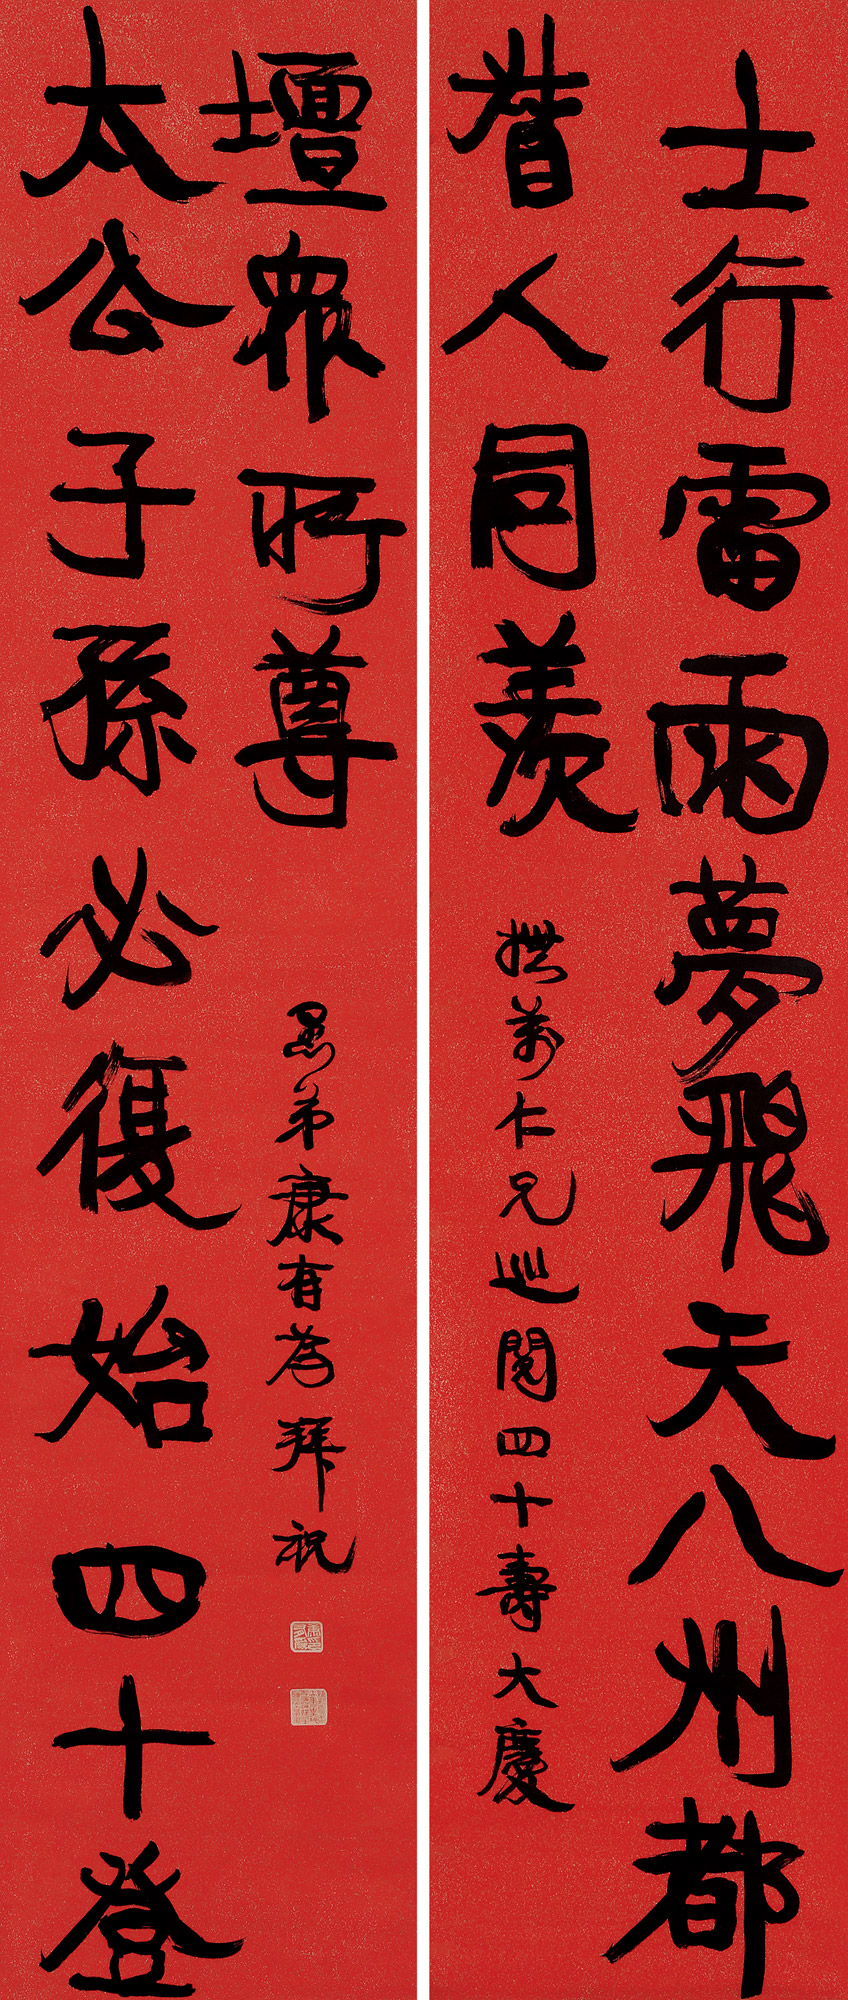 士行雷雨夢飛天八州都
督人同羨
撫萬仁兄巡閱四十壽大慶
太公子孫必復始四十登
壇眾所尊
愚弟康有為拜祝
康有為印